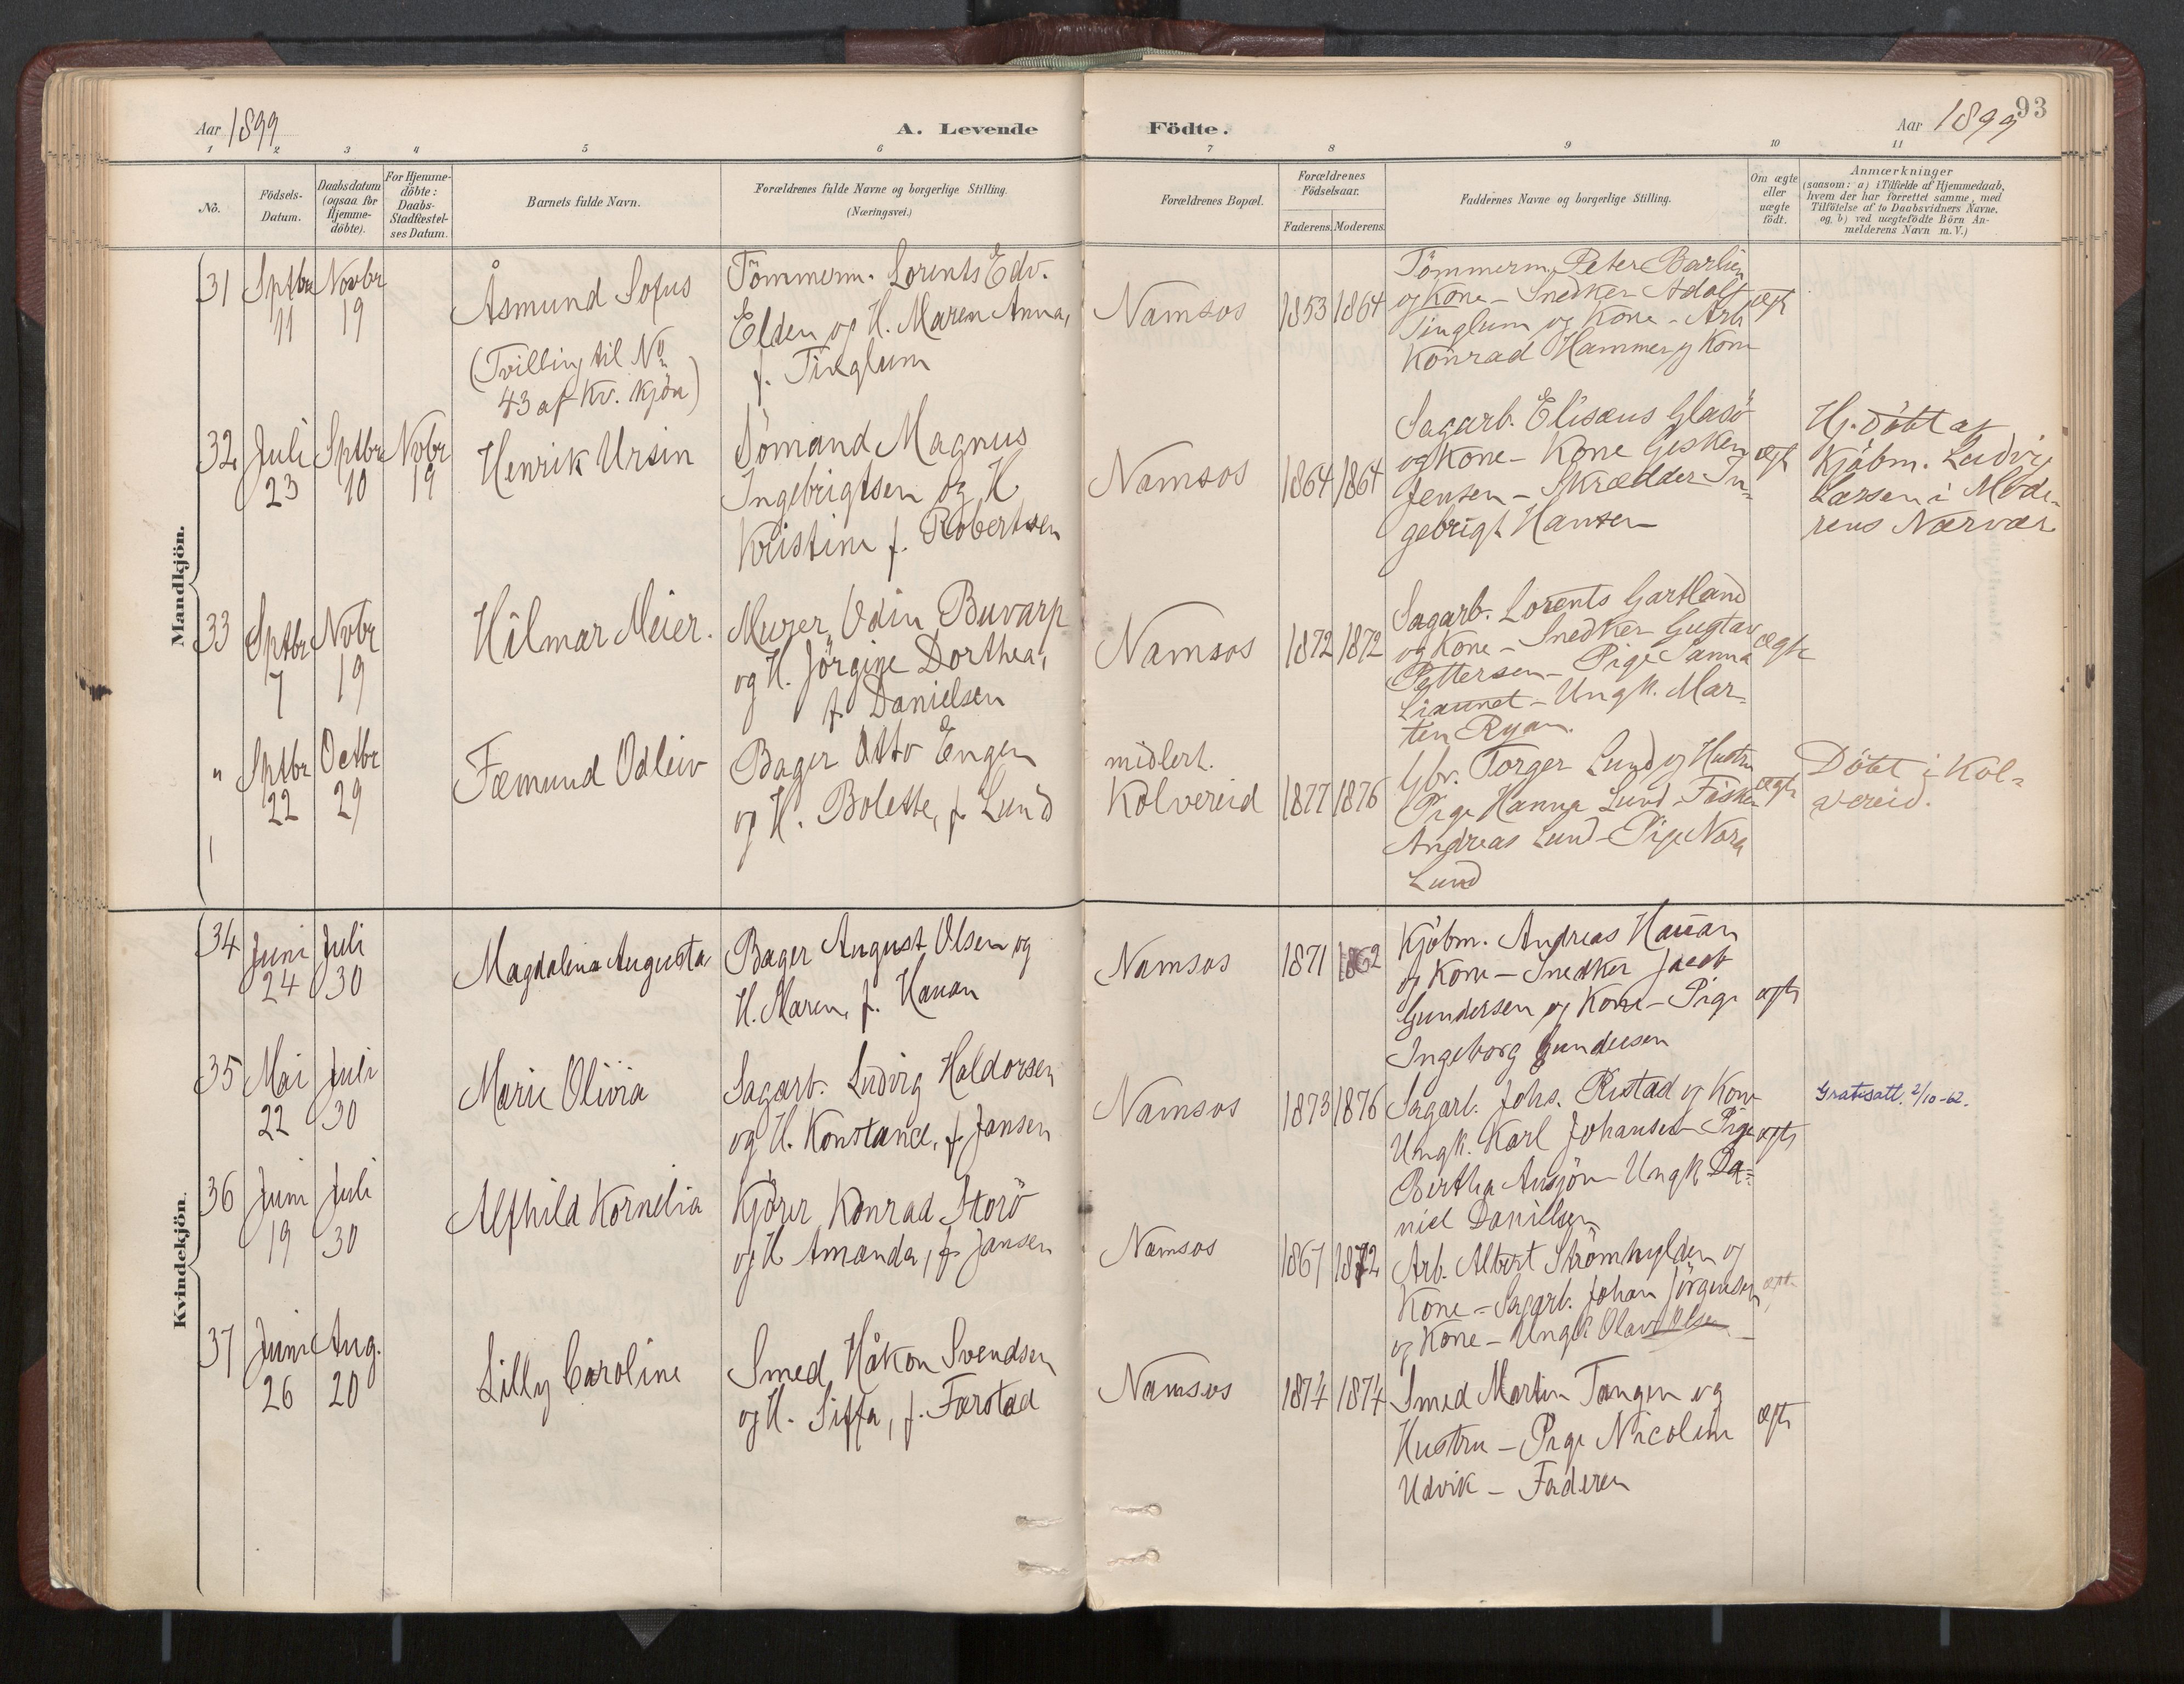 Aar 1899
A. Levende Födte.
Aar 1899
93
1 2 3 4 5 6 7 8 9 10 11
No.
Födsels-
Datum.
Daabsdatum
(ogsaa for
Hjemme-
döbte).
For Hjemme-
döbte:
Daabs-
Stadfæstel-
ses Datum.
Barnets fulde Navn.
Forældrenes fulde Navne og borgerlige Stilling.
(Næringsvei.)
Forældrenes Bopæl.
Forældrenes
Födselsaar.
Faderens. Moderens.
Faddernes Navne og borgerlige Stilling.
Om ægte
eller
uægte
födt.
Anmærkninger
(saasom: a) i Tilfælde af Hjemmedaab,
hvem der har forrettet samme, med
Tilföielse af to Daabsvidners Navne.
og b) ved uægtefödte Börn An-
melderens Navn m.V.)
Mandkjön.
31
Sptbr
11
Novbr
19
Åsmund Sofus
(Tvilling til No
43 af Kv. Kjön)
Tömmerm. Lorents Edv.
Elden og H. Maren Anna,
f. Tinglum
Namsos
1853
1864
Tömmerm. Peter Barlien
og Kone - Snedker Adolf
Tinglum og Kone - Arb.
Konrad Hammer og Kone
ægte
32
Juli
23
Sptbr
10
Novbr
19
Henrik Ursin
Sömand Magnus
Ingebrigtsen og H.
Kristine f. Robertsen
Namsos
1864
1864
Sagarb. Elisæus Glasö
og Kone - Kone Gesken
Jensen - Skrædder In-
gebrigt Hansen
ægte
Hj. döbt af
Kjöbm. Ludvig
Larsen i Mode-
rens Nærvær
33
Sptbr
7
Novbr
19
Hilmar Meier.
Murer Odin Buvarp
og H. Jörgine Dorthea,
f. Danielsen
Namsos
1872
1872
Sagarb. Lorents Gartland
og Kone - Snedker Gustav
Pettersen - Pige Sanna
Liaunet - Ungk. Mar-
ten Ryan.
ægte
"
Sptbr
22
Octbr
29
Fæmund Odleiv
Bager Otto Engen
og H. Bolette, f. Lund
midlert.
Kolvereid
1877
1876
Gbr. Torger Lund og Hustru
Pige Hanna Lund - Fisker
Andreas Lund - Pige Nora
Lund
ægte
Döbt i Kol-
vereid.
Kvindekjön.
34
Juni
24
Juli
30
Magdalena Augusta
Bager August Olsen og
H. Maren, f. Hauan
Namsos
1871
1862
Kjöbm. Andreas Hauan
og Kone - Snedker Jacob
Gundersen og Kone - Pige
Ingeborg Gundersen
ægte
35
Mai
22
Juli
30
Marie Olivia
Sagarb. Ludvig Haldorsen
og H. Konstance, f. Jansen
Namsos
1873
1876
Sagarb. Johs. Rustad og Kone
Ungk. Karl Johansen - Pige
Bertha Ansjön - Ungk. Da-
niel Danielsen
ægte
Gratisatt. 2/10-62.
36
Juni
19
Juli
30
Alfhild Kornelia
Kjörer Konrad Storö
og H. Amanda, f. Jansen
Namsos
1867
1872
Arb. Albert Strömhylden og
Kone - Sagarb. Johan Jörgensen
og Kone - Ungk. Olav Olsen
ægte
37
Juni
26
Aug.
20
Lilly Caroline
Smed Håkon Svendsen
og H. Siffa, f. Farstad
Namsos
1874
1874
Smed Martin Tangen og
Hustru - Pige Nicoline
Udvik - Faderen
ægte